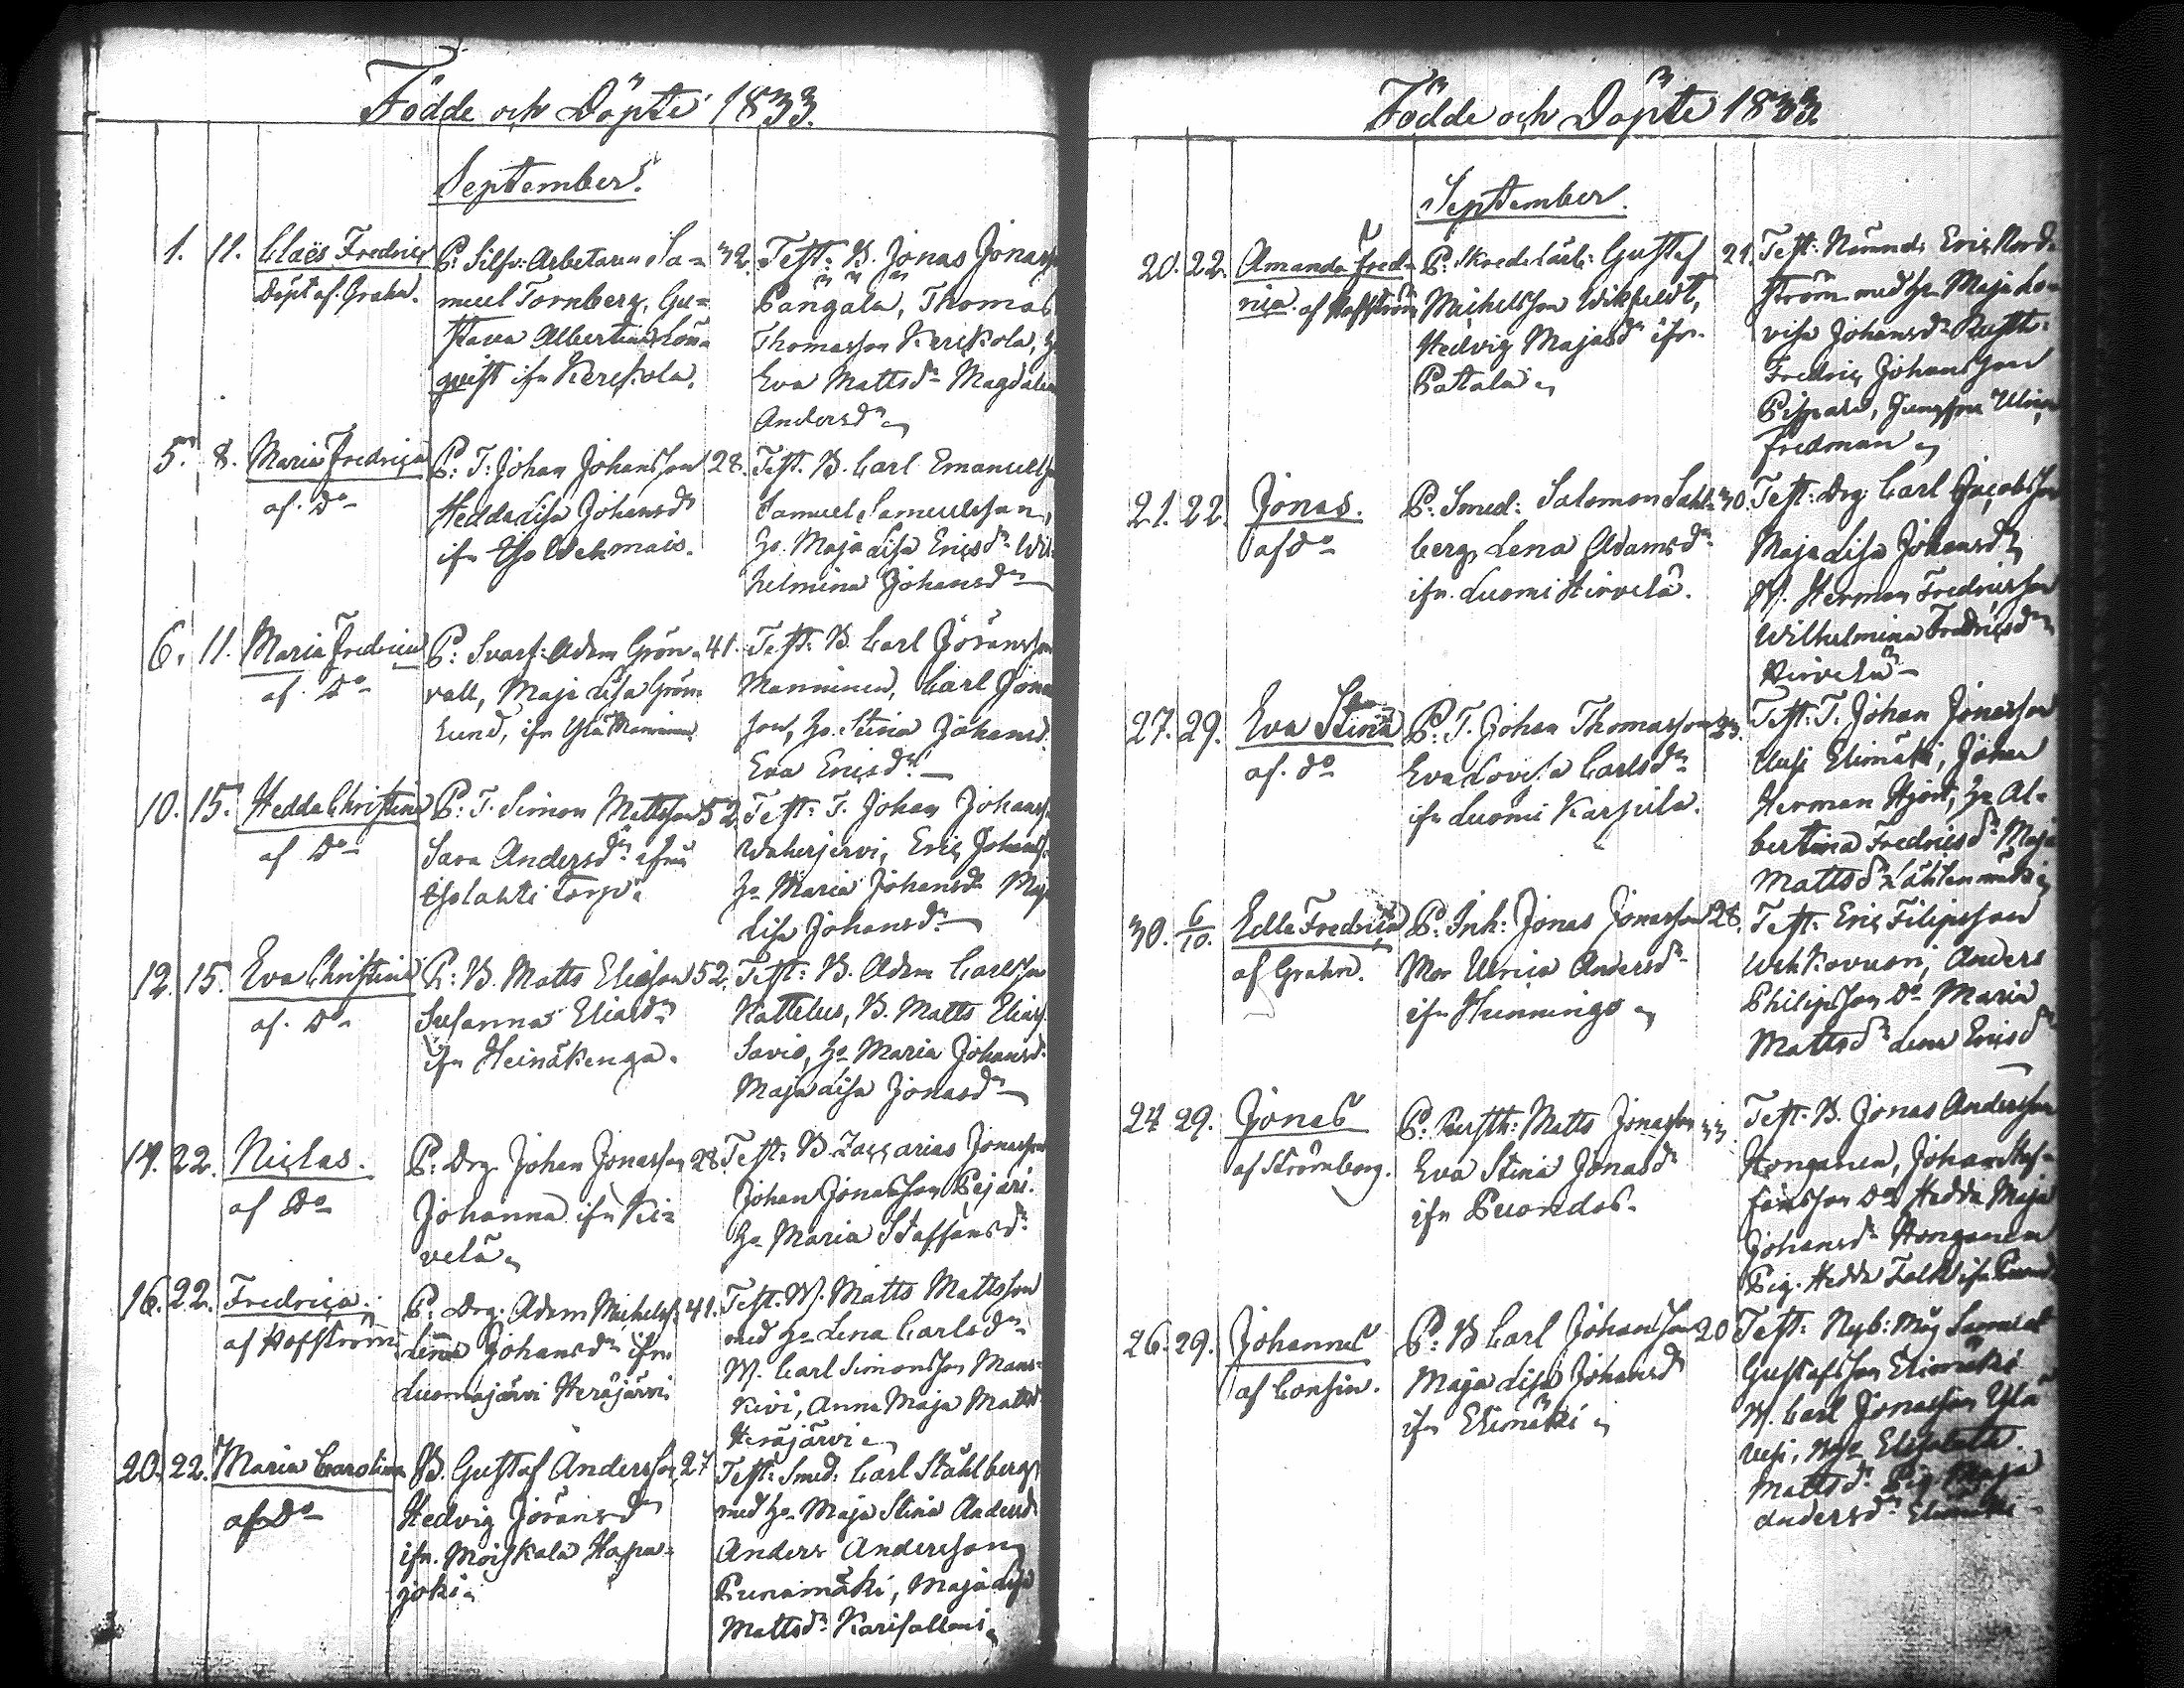 Födde och Döpte 1833.
September.
1. 11. Claës Fredric
Döpt af Grahn.
P: Silfv: Arbetaren Sa=
muel Tornberg, Gu=
stava Albertina Lön=
qvist ifn Kerckola.
32.
Test: B. Jonas Jonass
Pängälä, Thomas
Thomasson Kerckola,
Eva Mattsdr Magdalena
Andersdr
5. 8. Maria Fredrica
af Do
P: T: Johan Johansson
Hedda Lisa Johansdr
ifn Wehmais.
28.
Test. B. Carl Emanuelss
Samuel Samuelsson,
Ho. Maja Lisa Ericsdr Wil=
helmina Johansdr
6. 11. Maria Fredrica
af. Do
P: Svarf: Adam Grön=
vall, Maja Lisa Grön=
lund, ifn Ylä Manninen
41.
Test: B. Carl Göransson
Manninen, Carl Jona
son, Ho. Stina Johansd.
Eva Ericsdr
10. 15. Hedda Christina
af Do
P: T. Simon Mattsson
Sara Andersdr ifrn
Isolahti Torp.
52.
Test: T. Johan Johanss
Waherjervi, Eric Johanss.
Ho Maria Johansdr Maja
Lisa Johansdr
12. 15. Eva Christina
af. Do
P: B. Matts Eliasson
Susanna Eliasdr
ifn Heinäkenga.
52.
Test: B. Adam Carlsson
Kattelus, B. Matts Eliass.
Savio, Ho Maria Johansd.
Maja Lisa Jonasdr
14. 22. Niclas.
af Do
P: Drg. Johan Jonasson
Johanna ifn Ki=
velä
28.
Test: B. Zaccarias Jonasson
Johan Jonasson Pejari.
Ho Maria Staffansdr
16. 22. Fredrica.
af Hoffström
P: Drg: Adam Michelss.
Lena Johansdr ifrn
Luomajärvi Heräjärvi
41.
Test. W. Matts Mattsson
med Ho Lena Carlsdr
W. Carl Simonsson Mans=
kivi, Anna Maja Mattsd
Heräjärvi
20. 22. Maria Carolina
af Do
B. Gustaf Andersson
Hedvig Joransdr
ifn. Moiskala Hapa=
joki
27
Test: Smed: Carl Ståhlberg
med Ho Maja Stina Andersd
Anders Andersson
Punamäki, Maja Lisa
Mattsdr Karisallmi
Födde och Döpte 1833.
September.
20. 22. Amanda Fred=
rica. af Hoffström
P: Skrädd: Gustaf
Michelsson Wikfeldt,
Hedvig Majasdr ifrn
Patala
21.
Test: Nämnd: Eric Nord=
ström med Ho Maja Lo=
visa Johansdr Rusth:
Fredric Johansson
Pispala, Jungfru Ulrica
Fredman
21. 22. Jonas.
af do
P: Smed: Salomon Sahl=
berg, Lena Adamsdr
ifn. Luomi Hirvelä.
30.
Test: Drg Carl Jacobsson
Maja Lisa Johansdr
W. Herman Fredricsson
Wilhelmina Fredricsdr
Hirvelä
27. 29. Eva Stina
af. do
P: T. Johan Thomasson
Eva Lovisa Carlsdr
ifn Luomi Karpila.
Test: T. Johan Jonasson
Uusi Elimäki, Johan
Herman Hjort, Ho Al=
bertina Fredricsdr Maja
Mattsdr Lähtenmäki
30. 6/10. Edla Fredrica
af Grahn.
P: Inh: Jonas Jonasson
Mor Ulrica Andersdr
ifn Hunningo
28.
Test: Eric Filipsson
Wehkavuori, Anders
Philipsson Do Maria
Mattsdr Lena Ericsdr
24 29. Jonas
af Strömberg.
P: Rusth: Matts Jonasson
Eva Stina Jonasdr
ifn Puondos.
33
Test. B. Jonas Andersson
Honganen, Johan Staf=
fansson Do Hedda Maja
Johansdr Honganen
Pig. Hedda Falk ifn
26. 29. Johannes
af Consin.
P: B Carl Johansson
Maja Lisa Johansdr
ifn Elimäki
20
Test: Nyb: Måg Samuel
Gustafsson Elimäki
W. Carl Jonasson Ylä
vesi, Elisabeth
Mattsdr Pig Maja
Andersdr Elimäki